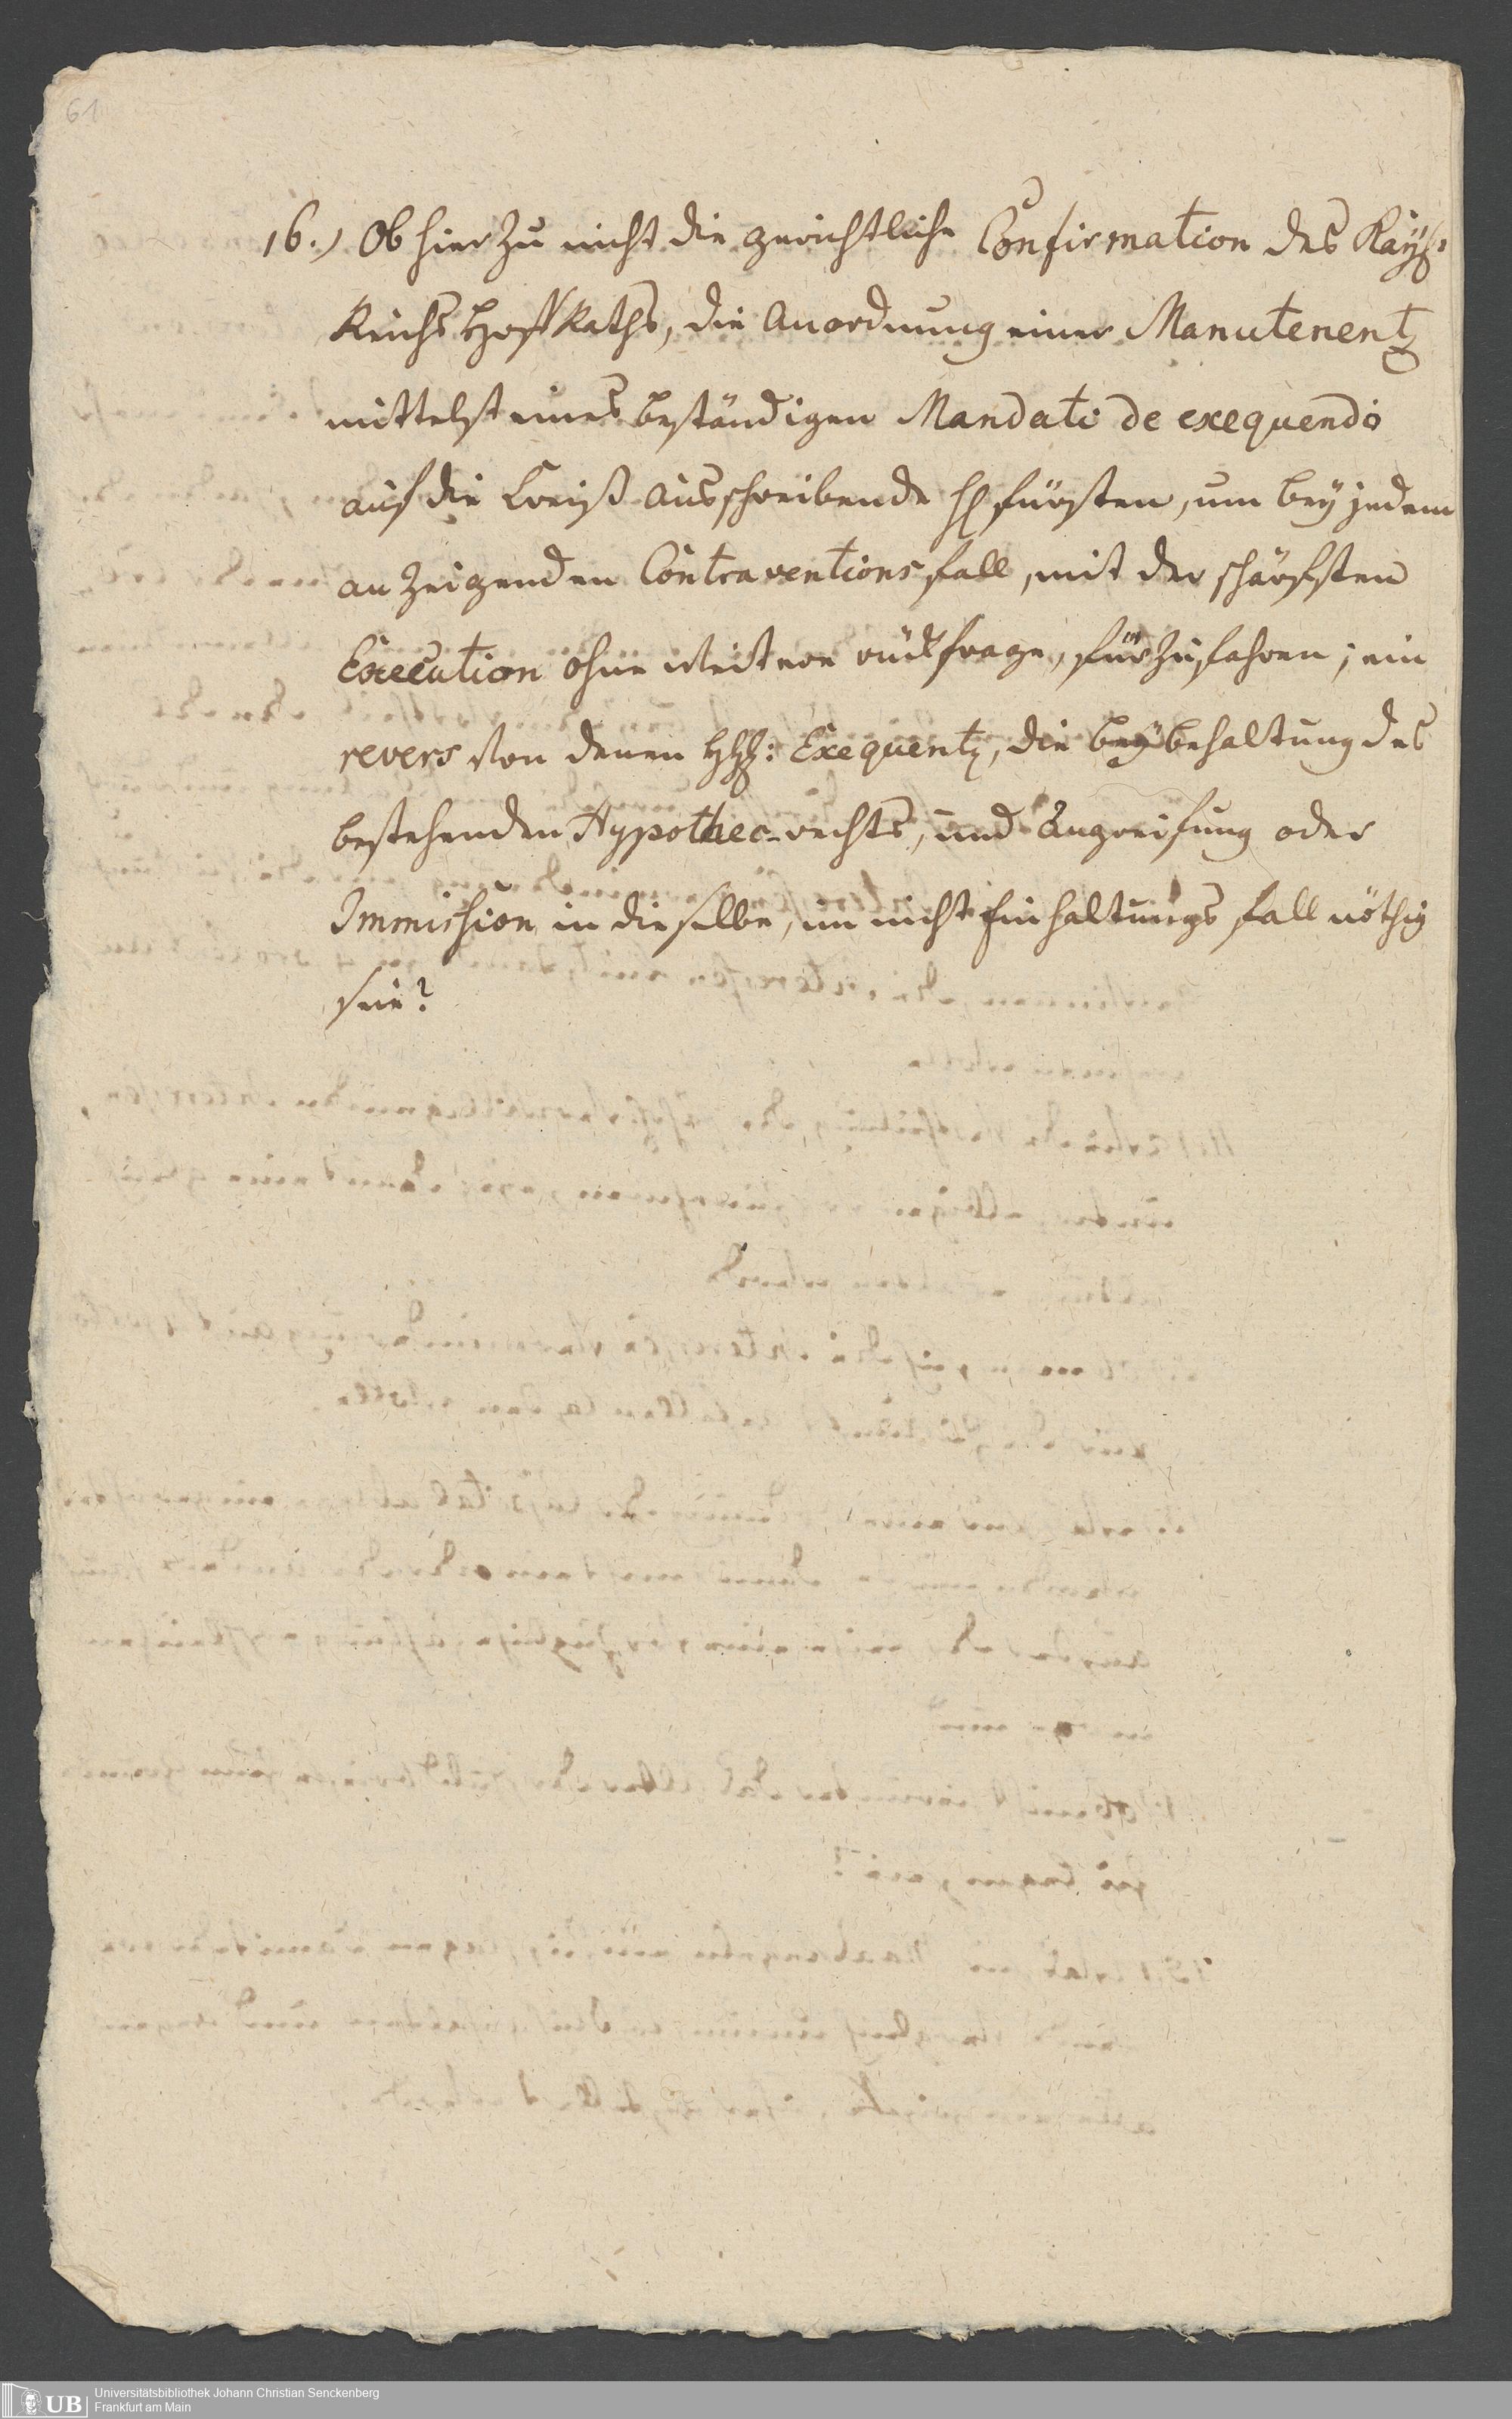 61
16.) Ob hierzu nicht die gerichtliche Confirmation des Kayß.
Reichs Hoff Raths, die Anordnung einer Manutenentz
mittelst eines beständigen Mandati de exequendo
auf die Creiß ausschreibende H. fürsten, um bey jedem
anzeigenden Contraventions fall, mit der schärfsten
Execution ohne weitere rückfrage, fürzufahren; ein
revers von denen HH: Exequentz, die beybehaltung des
bestehenden Hypothec-rechts, und Angreifung oder
Immission in dieselbe, im nicht Einhaltungs fall nöthig
seie?
UB Universitätsbibliothek Johann Christian Senckenberg
Frankfurt am Main